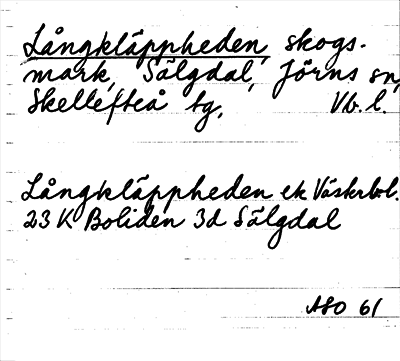 Långkläppheden, skogs-
mark, Sälgdal, Jörns sn,
Skellefteå tg, Vb. l.
Långkläppheden ek Västerbol.
23 K Boliden 3d Sälgdal
ASO 61